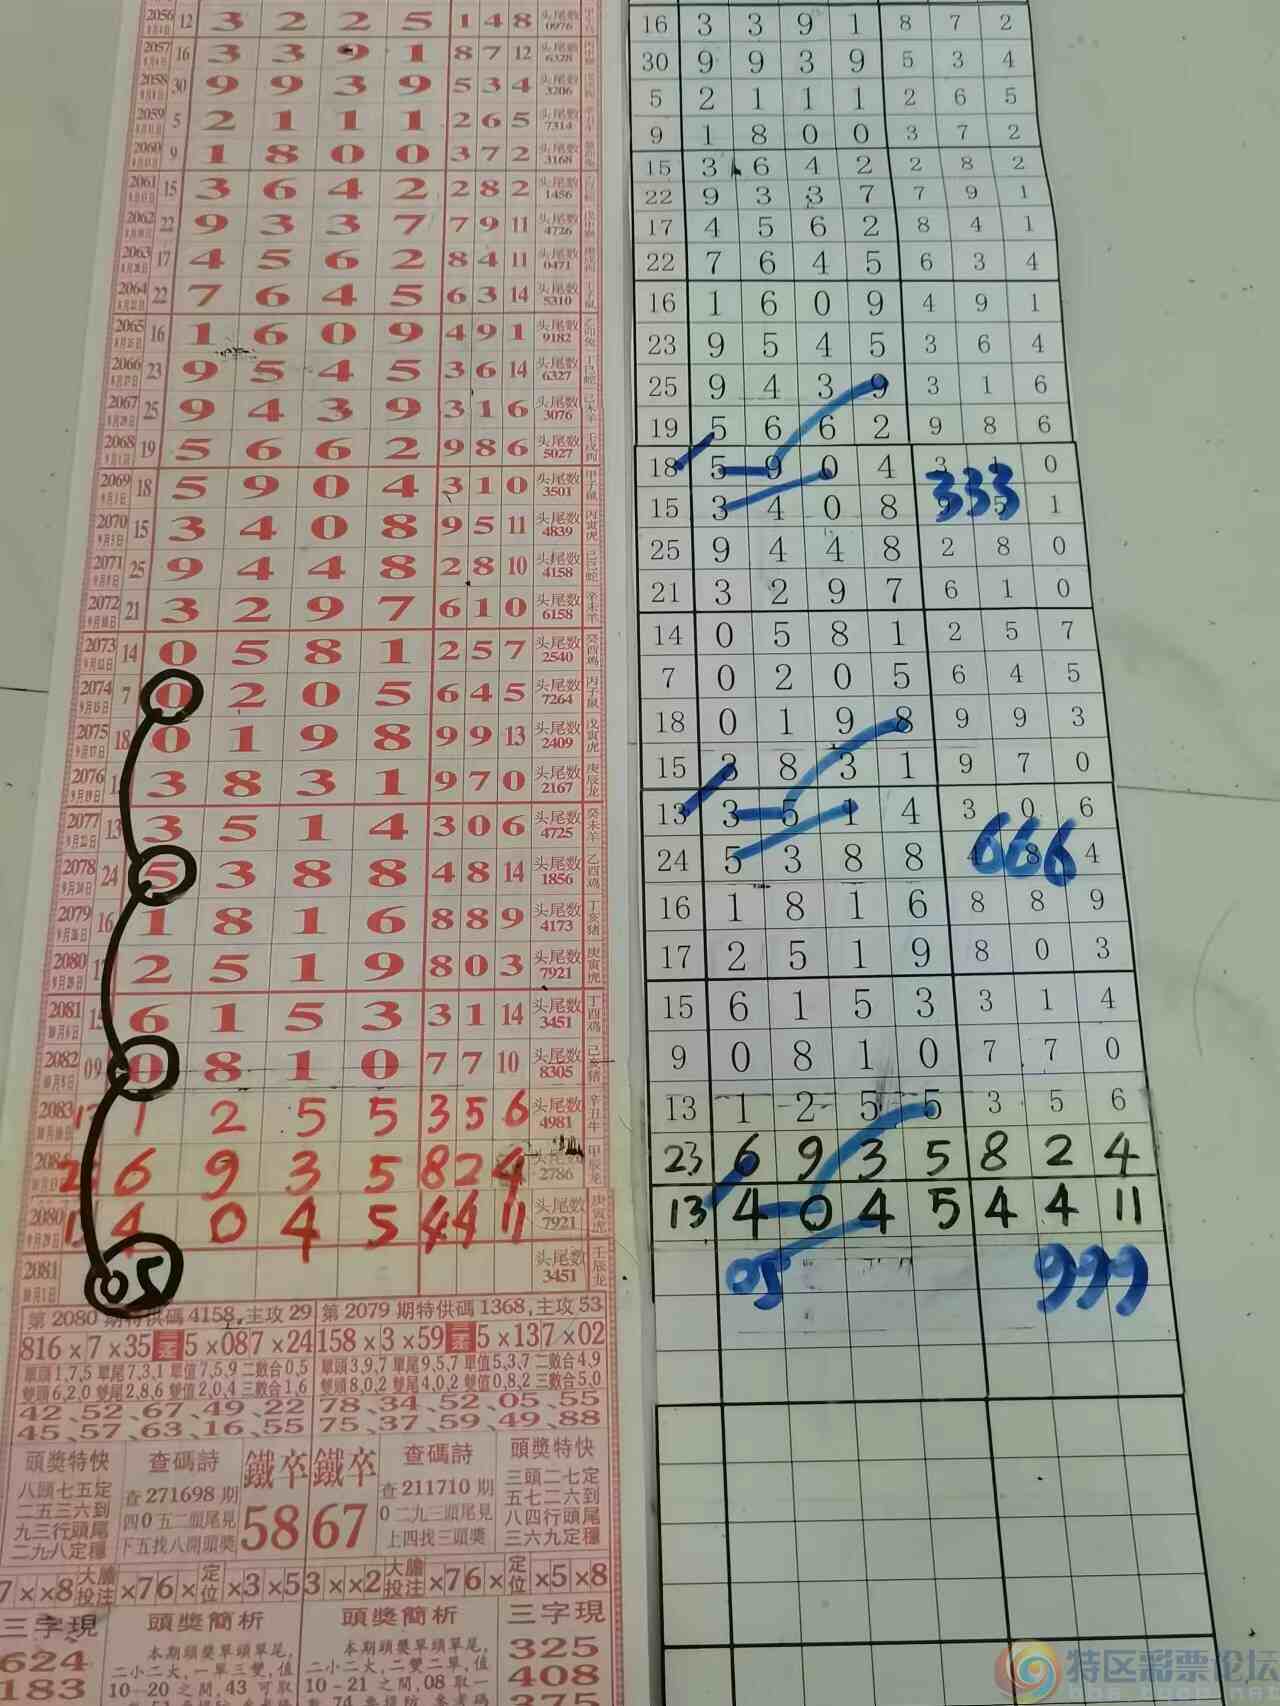 2056 12 3 2 2 5 1 4 8 头尾数 0976
2057 16 3 3 9 1 8 7 12 头尾数 6328
2058 30 9 9 3 9 5 3 4 头尾数 3206
2059 5 2 1 1 1 2 6 5 头尾数 7314
2060 9 1 8 0 0 3 7 2 头尾数 3168
2061 15 3 6 4 2 2 8 2 头尾数 1456
2062 22 9 3 3 7 7 9 11 头尾数 4726
2063 17 4 5 6 2 8 4 11 头尾数 0471
2064 22 7 6 4 5 6 3 14 头尾数 5310
2065 16 1 6 0 9 4 9 1 头尾数 9182
2066 23 9 5 4 5 3 6 14 头尾数 6327
2067 25 9 4 3 9 3 1 6 头尾数 3076
2068 19 5 6 6 2 9 8 6 头尾数 5027
2069 18 5 9 0 4 3 1 0 头尾数 3501
2070 15 3 4 0 8 9 5 11 头尾数 4839
2071 25 9 4 4 8 2 8 10 头尾数 4158
2072 21 3 2 9 7 6 1 0 头尾数 6158
2073 14 0 5 8 1 2 5 7 头尾数 2540
2074 7 0 2 0 5 6 4 5 头尾数 7264
2075 18 0 1 9 8 9 9 13 头尾数 2409
2076 3 8 3 1 9 7 0 头尾数 2167
2077 13 3 5 1 4 3 0 6 头尾数 4725
2078 24 5 3 8 8 4 8 14 头尾数 1856
2079 16 1 8 1 6 8 8 9 头尾数 4173
2080 2 5 1 9 8 0 3 头尾数 7921
2081 6 1 5 3 3 1 14 头尾数 3451
2082 09 0 8 1 0 7 7 10 头尾数 8305
2083 1 2 5 5 3 5 6 头尾数 4981
6 9 3 5 8 2 4 头尾数 2786
2080 4 0 4 5 4 4 11 头尾数 7921
2081 05 头尾数 3451
第2080期特供碼4158,主攻29 第2079期特供碼1368,主攻53
816×7×35 5×087×24 158×3×59 5×137×02
單頭1,7,5 單尾7,3,1 單值7,5,9 二數合0,5 單頭3,9,7 單尾9,5,7 單值5,3,7 二數合4,9
雙頭6,2,0 雙尾2,8,6 雙值2,0,4 三數合1,6 雙頭8,0,2 雙尾4,0,2 雙值0,8,2 三數合5,0
42、52、67、49、22 78、34、52、05、55
45、57、63、16、55 75、37、59、49、88
頭獎特快
八頭七五定
二五三六到
九三行頭尾
二九八定穩
查碼詩
查271698期
四0五二頭尾見
下五找八開頭獎
鐵卒
58
鐵卒
67
查碼詩
查211710期
0二九三頭尾見
上四找三頭獎
頭獎特快
三頭二七定
五七二六到
八四行頭尾
三六九定穩
7××8 大膽投注 ×76× 定位 ×3×5 3××2 大膽投注 ×76× 定位 ×5×8
三字現
624
183
頭獎簡析
本期頭獎單頭單尾,
二小二大,一單三雙,值
10－20之間,43可取
頭獎簡析
本期頭獎單頭單尾,
二小二大,二雙二單,值
10－21之間,08取一
三字現
325
408
375
16 3 3 9 1 8 7 2
30 9 9 3 9 5 3 4
5 2 1 1 1 2 6 5
9 1 8 0 0 3 7 2
15 3 6 4 2 2 8 2
22 9 3 3 7 7 9 1
17 4 5 6 2 8 4 1
22 7 6 4 5 6 3 4
16 1 6 0 9 4 9 1
23 9 5 4 5 3 6 4
25 9 4 3 9 3 1 6
19 5 6 6 2 9 8 6
18 5 9 0 4 3 1 0
333
15 3 4 0 8 9 5 1
25 9 4 4 8 2 8 0
21 3 2 9 7 6 1 0
14 0 5 8 1 2 5 7
7 0 2 0 5 6 4 5
18 0 1 9 8 9 9 3
15 3 8 3 1 9 7 0
13 3 5 1 4 3 0 6
666
24 5 3 8 8 4 8 4
16 1 8 1 6 8 8 9
17 2 5 1 9 8 0 3
15 6 1 5 3 3 1 4
9 0 8 1 0 7 7 0
13 1 2 5 5 3 5 6
23 6 9 3 5 8 2 4
13 4 0 4 5 4 4 11
05 999
特区彩票论坛